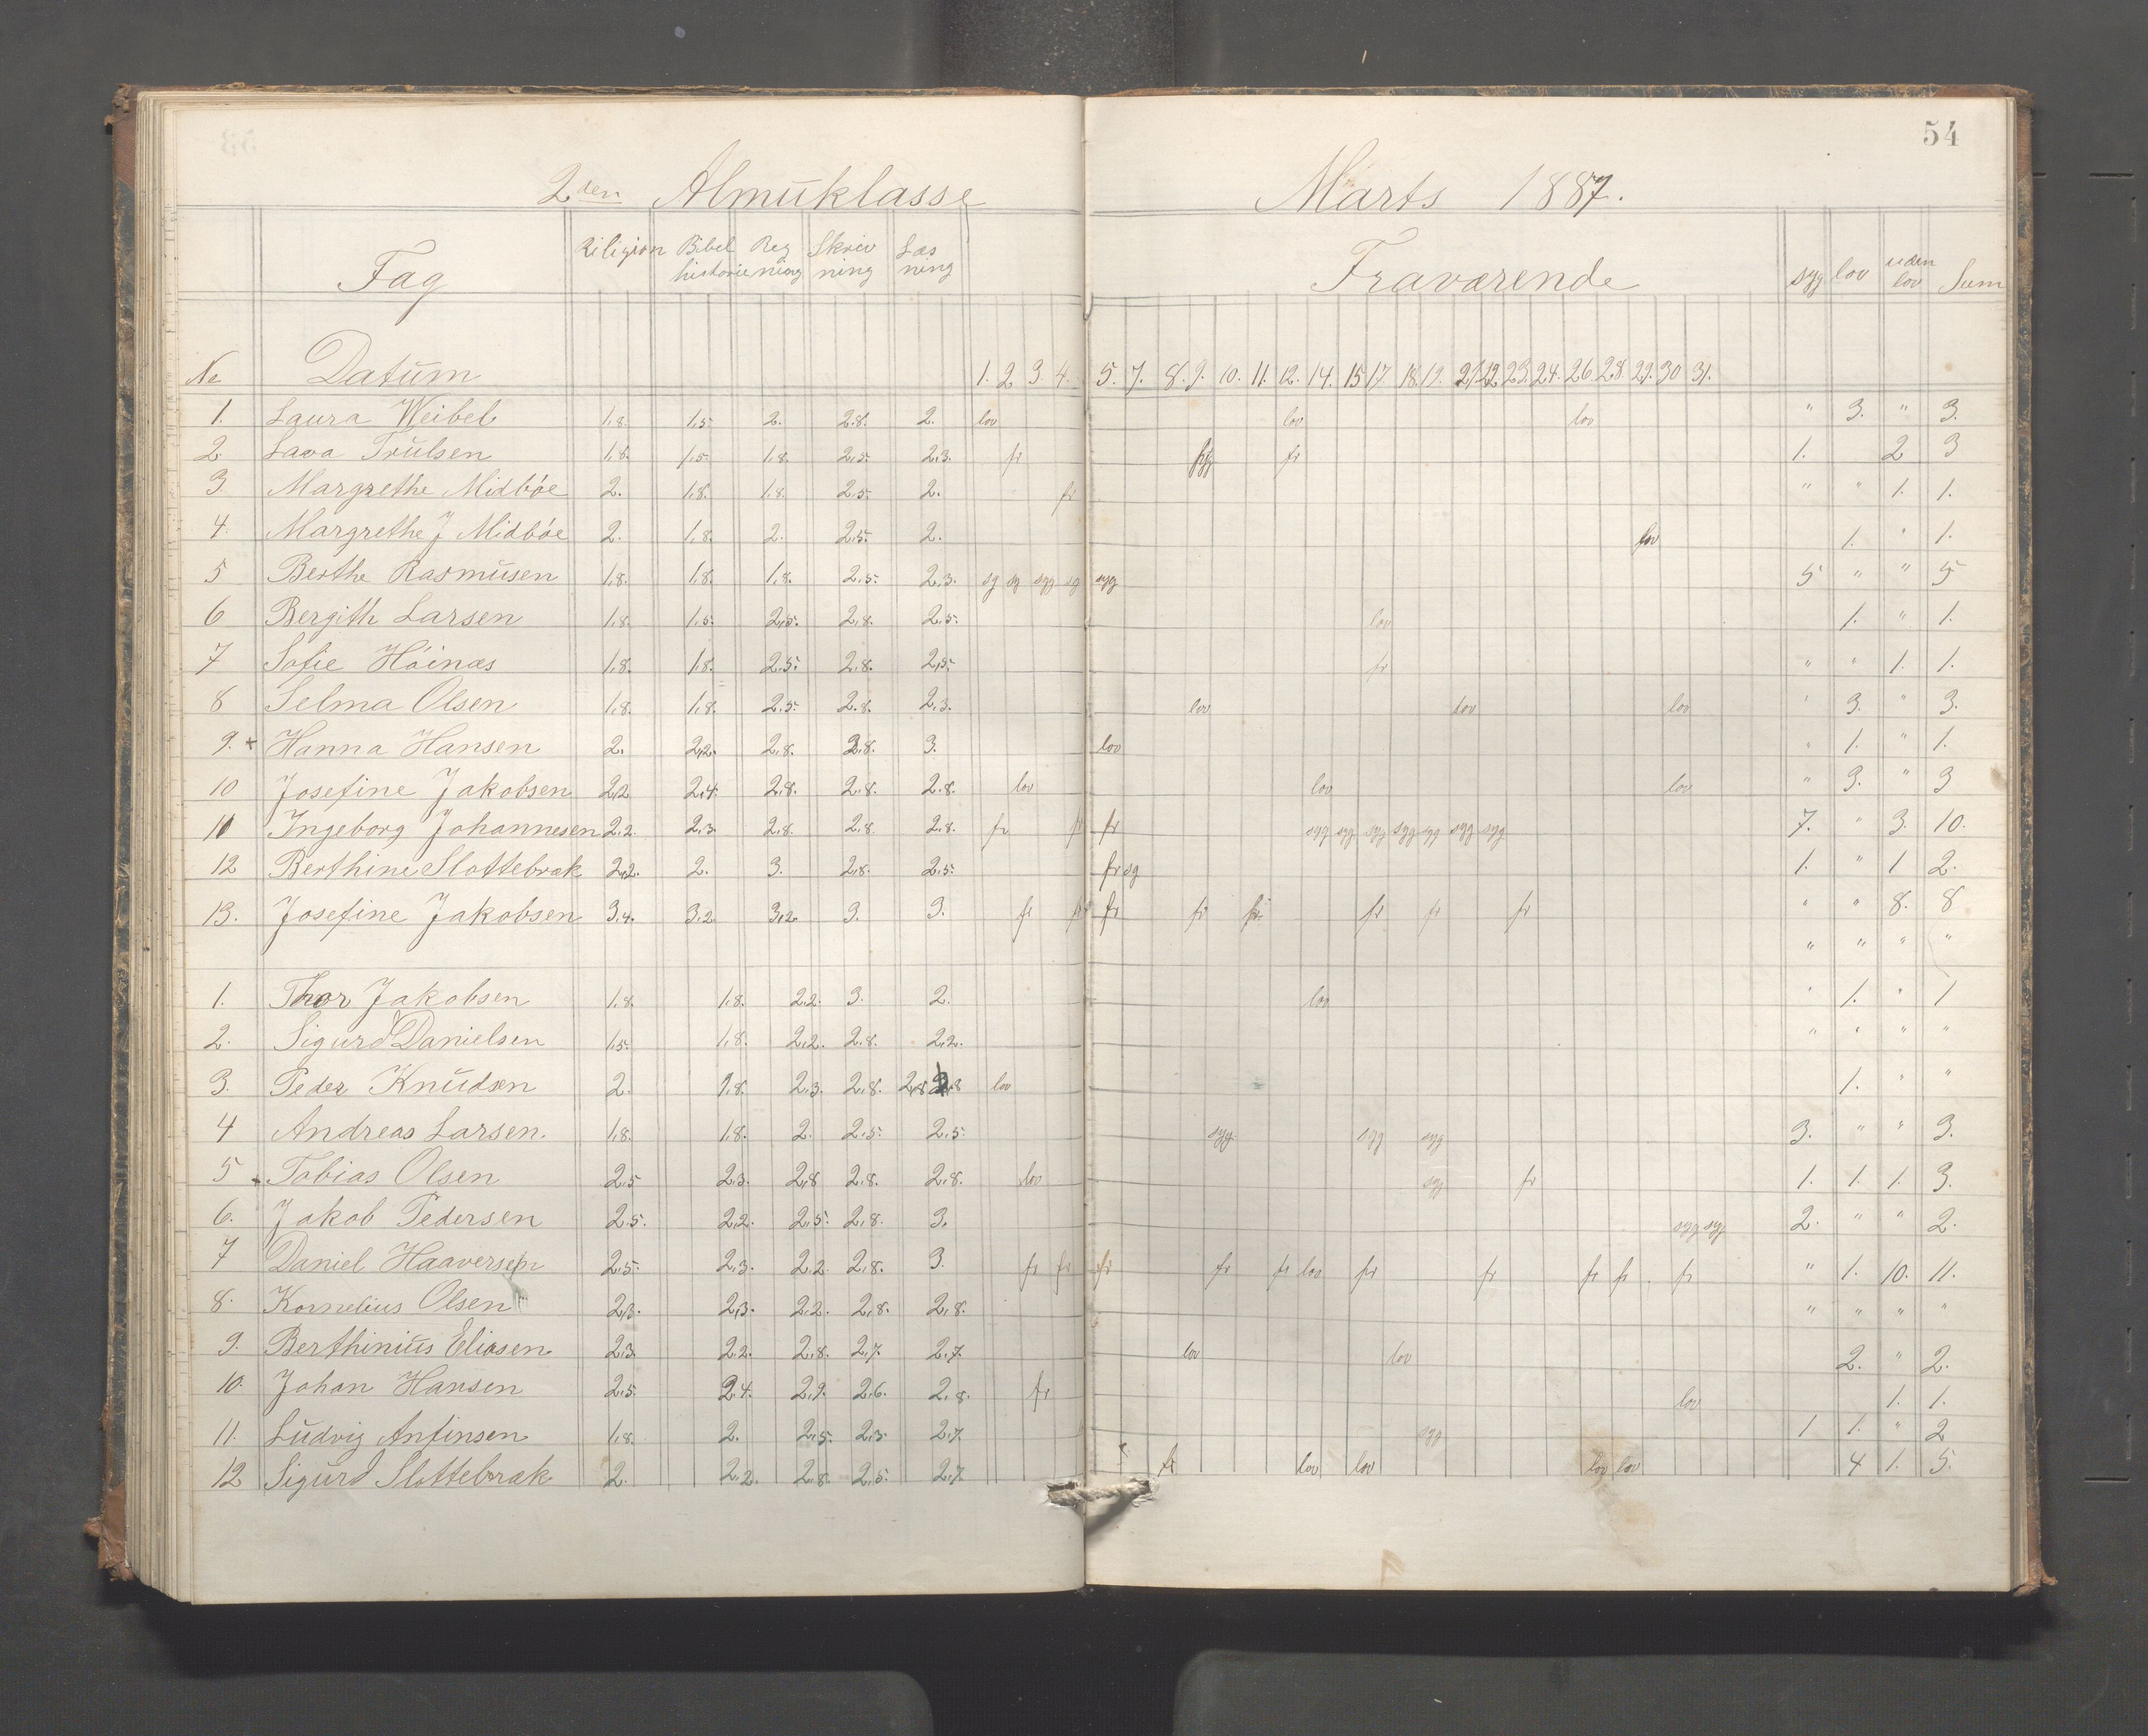 54
2den Almuklasse Marts 1887.
Fag Religion Bibel historie Reg ning Skriv ning Læs ning Fraværende syg lov uden lov Sum
No Datum 1. 2 3. 4. 5. 7. 8. 9. 10. 11. 12. 14. 15 17. 18. 19. 21. 22. 23. 24. 26 28 29. 30 31.
1. Laura Weibel 1,8. 1,5. 2. 2.8. 2. lov lov lov " 3. " 3.
2. Lava Trulsen 1,8. 1,5. 1,8. 2,5. 2,3. fr syg fr 1. 2 3
3. Margrethe Midbóe 2. 1,8. 1,8. 2,5. 2. fr " " 1. 1.
4. Margrethe J Midbóe 2. 1,8. 2. 2,5. 2. lov 1. " 1.
5 Berthe Rasmusen 1,8. 1,8. 1,8. 2,5. 2,3. sg sg syg sg syg 5 " " 5
6 Bergith Larsen 1,8. 1,5. 2,5. 2,8. 2,5. lov 1. " 1.
7 Sofie Hóinæs 1,8. 1,8. 2,5. 2,8. 2,5. fr " " 1. 1.
8 Selma Olsen 1,8. 1,8. 2,5. 2.8. 2,3. lov lov lov " 3. " 3.
9. + Hanna Hansen 2. 2,2. 2,8. 2,8. 3. lov " 1. " 1.
10 Josefine Jakobsen 2,2 2,4. 2,8. 2,8. 2,8. lov lov lov " 3. " 3
11 Ingeborg Johannesen 2,2. 2,3. 2,8. 2,8. 2,8. fr fr fr syg syg syg syg syg syg syg 7. " 3. 10.
12 Berthine Slottebrak 2,2. 2. 3. 2,8. 2,5. fr sg 1. " 1 2.
13. Josefine Jakobsen 3,4. 3,2 3,2. 3. 3. fr fr fr fr fr fr fr fr " " 8. 8
" " " "
1. Thor Jakobsen 1,8. 1,8. 2,2. 3. 2. lov " 1. " 1
2. Sigurd Danielsen 1,5. 1,8. 2,2. 2,8. 2,2. " " " "
3. Peder Knudsen 2. 1,8. 2,3. 2,8. 2,8 lov 1. " "
4 Andreas Larsen. 1,8. 1,8. 2. 2,5. 2,5. syg. syg syg 3. " " 3.
5 + Tobias Olsen 2,5 2,3. 2,8 2,8. 2,8. lov syg fr 1. 1. 1. 3.
6. Jakob Pedersen 2,5. 2,2. 2,5. 2,8. 3. syg syg 2. " " 2.
7 Daniel Haaversen 2,5. 2,3. 2,2. 2,8. 3. fr fr fr fr fr lov fr fr fr fr fr " 1. 10. 11.
8. Kornelius Olsen 2,3. 2,3. 2,2. 2,8. 2,8. " " " "
9. Berthinius Eliasen 2,3. 2,2. 2,8. 2,7. 2,7. lov lov 2. " 2.
10. Johan Hansen 2,5. 2,4. 2,9. 2,6. 2,8. fr lov 1. 1.
11. Ludvig Anfinsen 1,8. 2. 2,5. 2,3. 2,7. syg 1 1. " 2
12 Sigurd Slottebrak 2. 2,2. 2,8. 2,5. 2,7. fr lov lov lov lov 4 1. 5.